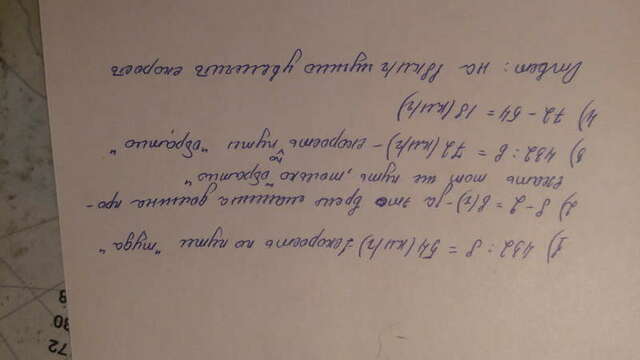 72
30
8
1) 432 : 8 = 54 (км/ч) скорость по пути "туда"
2) 8 - 2 = 6 (ч) - за это время машина должна про-
ехать тот же путь, только "обратно"
3) 432 : 6 = 72 (км/ч) - скорость по пути "обратно"
4) 72 - 54 = 18 (км/ч)
Ответ: на 18 км/ч нужно увеличить скорость